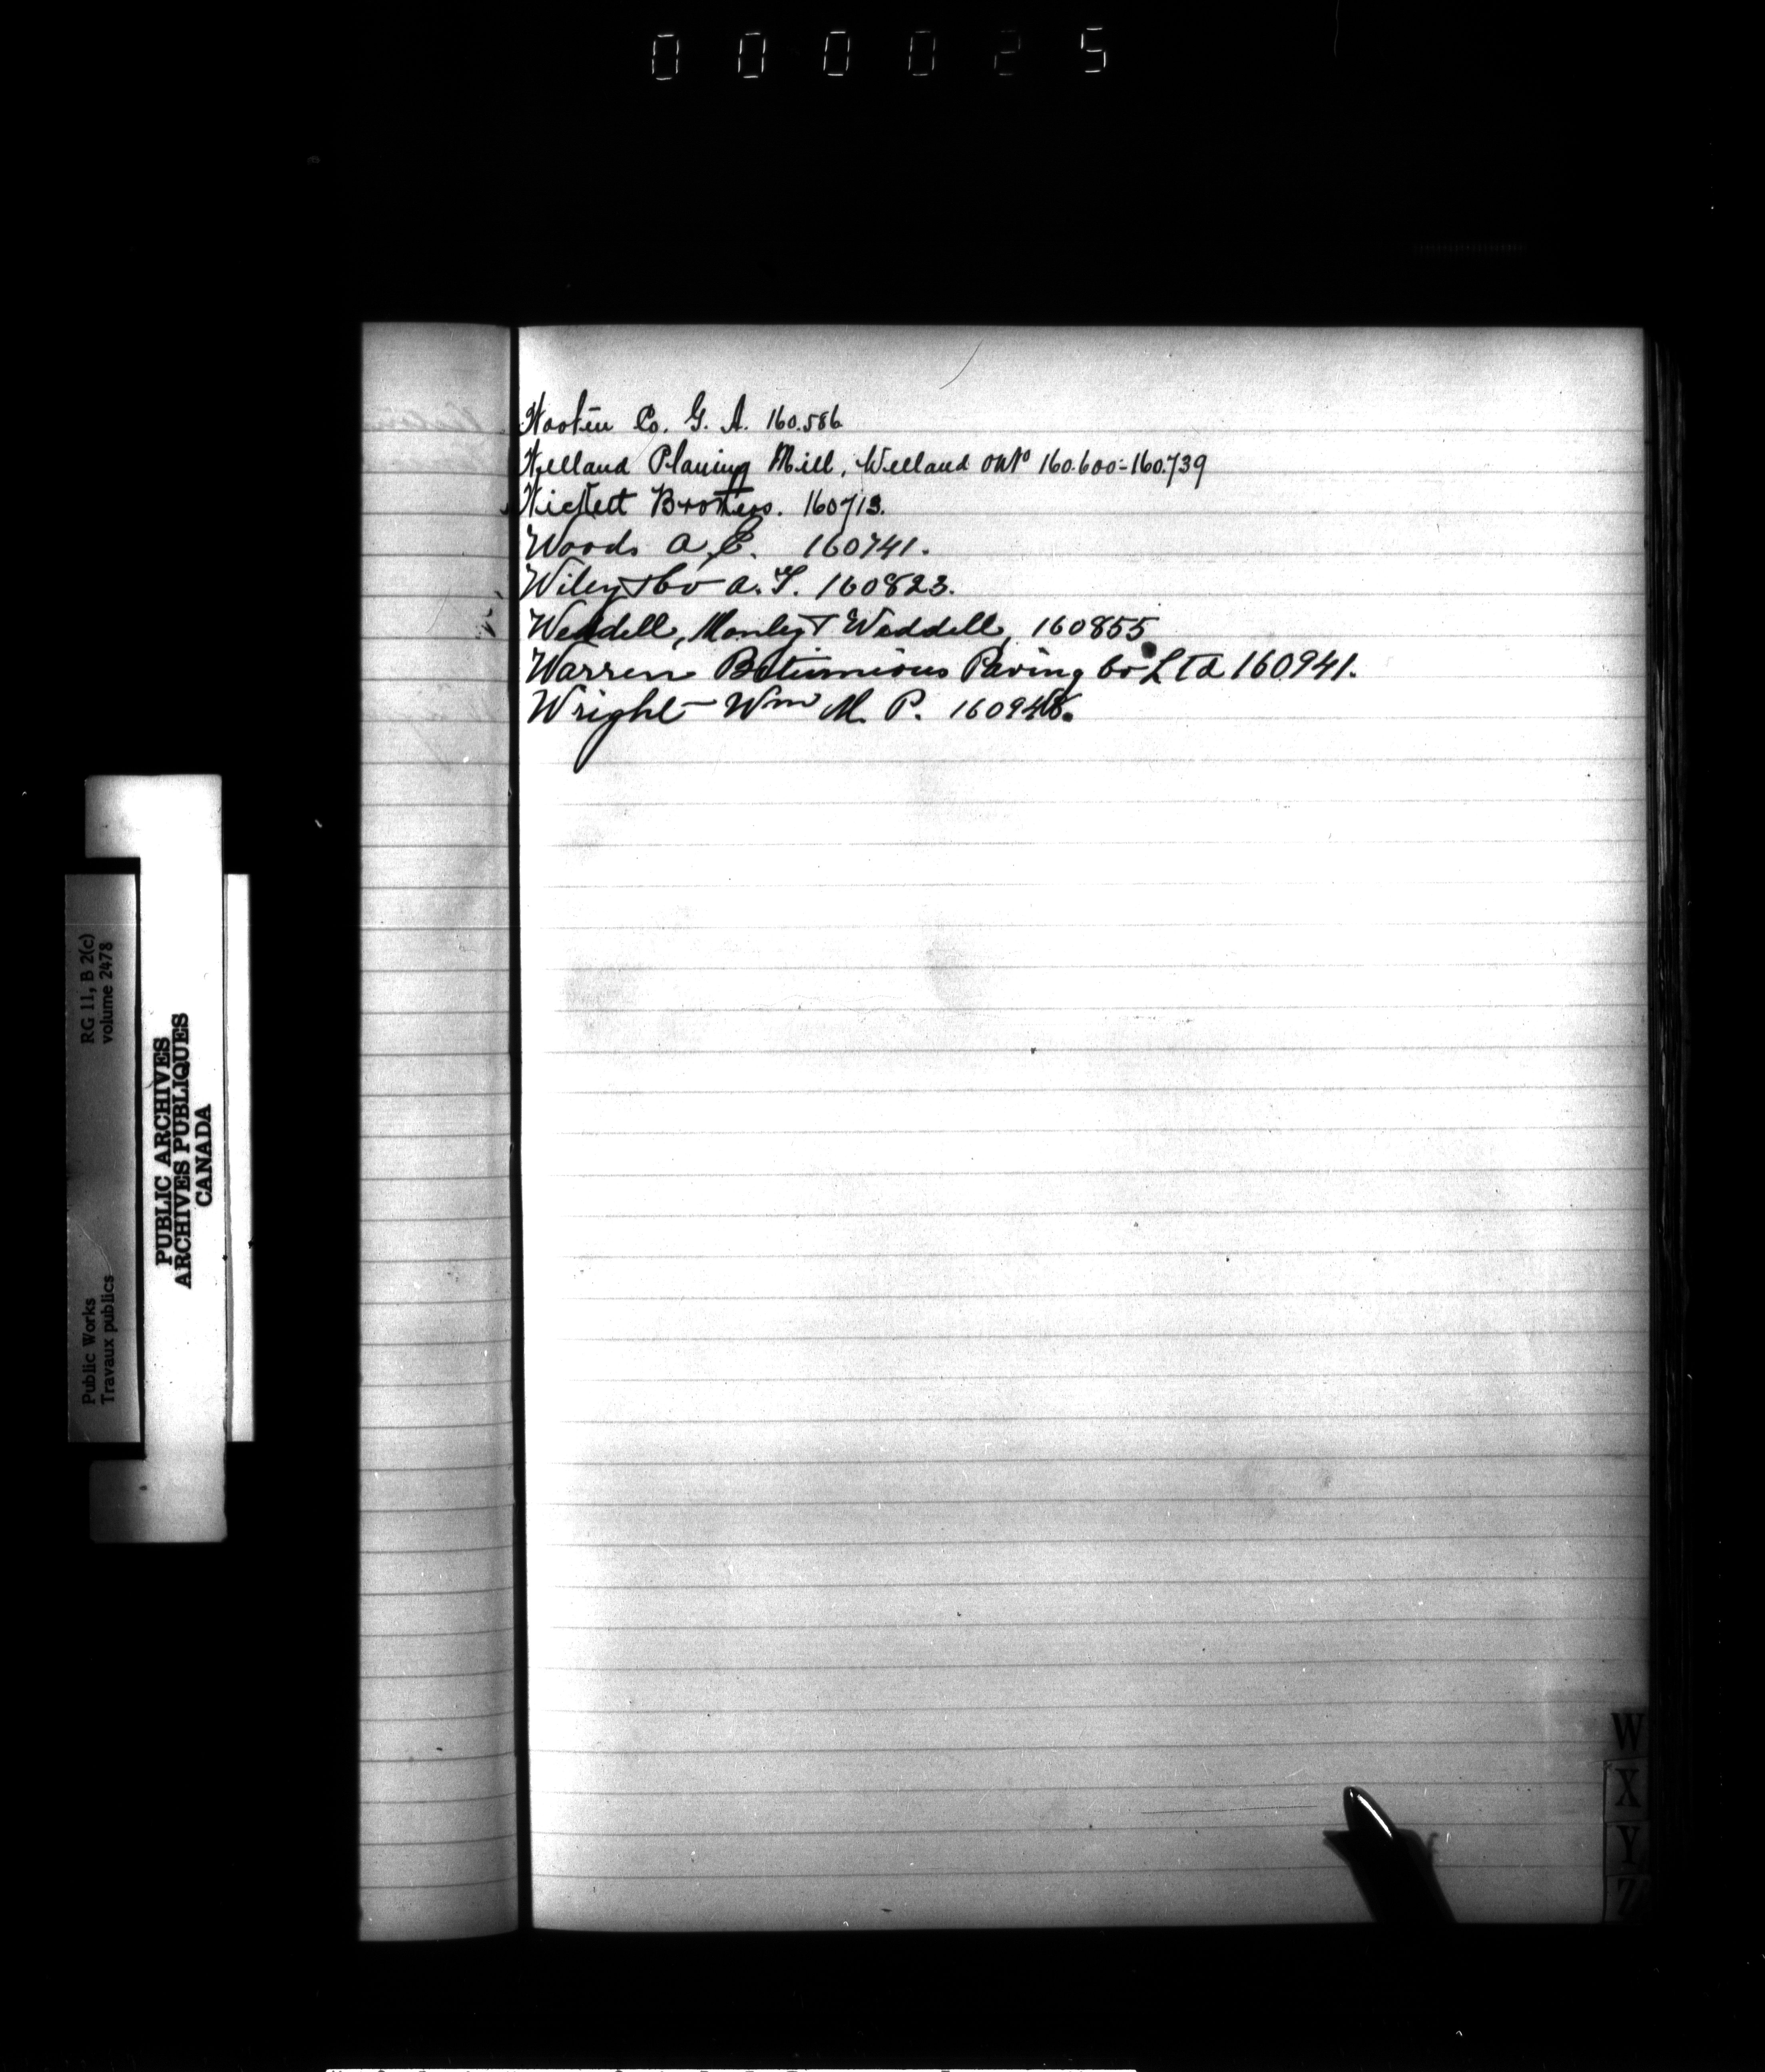 000025
Wooten Co. G. A. 160.586
Welland Planing Mill, Welland Onto 160.600-160.739
Brothers. 160713.
Woods A. E. 160741.
Wiley & Co A. T. 160823.
Weddell, Manley & Weddell, 160855
Warren Bitumious Paving Co Ltd 160941.
Wright Wm M. P.
W
X
Y
Z
RG 11, B 2(c)
volume 2478
Public Works
Travaux publics
PUBLIC ARCHIVES
ARCHIVES PUBLIQUES
CANADA